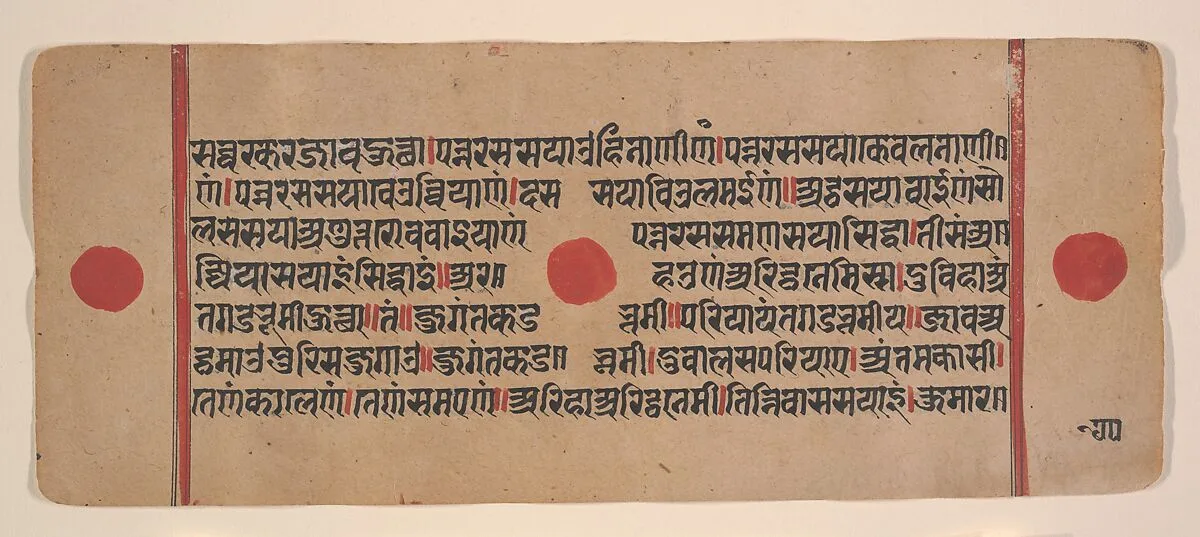 सन्निरकरजावहुत्था।पन्नरससयाउहिनाणीणं।पन्नरससयाकेवलनाणी॥
णं।पन्नरससयावेउव्वियाणं।दस सयाविउलमईणं॥अट्ठसयावाईणंसो
लससयाअणुत्तरोववाइयाणं पन्नरससमणसयासिद्धा।तीसंअ॥
ज्जियासयाइंसिद्धाइं॥अर॥ हउणंअरिट्ठनेमिस्स।दुविहाअं
तगडभूमीहुत्था॥तं॥जुगंतकड भूमी॥परियायंतगडभूमीय॥जावअ
ट्ठमाउपुरिसजुगाउ॥जुगंतकड॥ भूमी।दुवालसपरियाए।अंतमकासी।
तेणंकालेणं।तेणंसमएणं॥अरिहाअरिट्ठनेमी।तिन्निवाससयाइं।कुमार॥